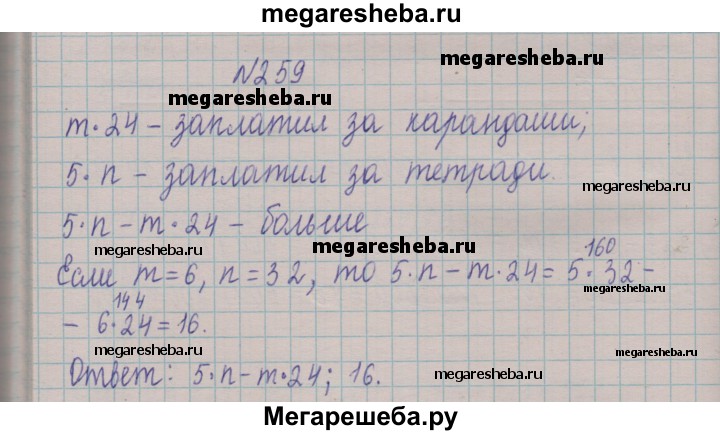 megaresheba.ru
megaresheba.ru
N259
megaresheba.ru
m·24 – заплатил за карандаши;
5·n – заплатил за тетради.
megaresheba.ru
5·n – m·24 – больше
megaresheba.ru
megaresheba.ru
160
Если m=6, n=32, то 5·n – m·24 = 5·32 –
megaresheba.ru
144
– 6·24 = 16.
megaresheba.ru
megaresheba.ru
Ответ: 5·n – m·24; 16.
megaresheba.ru
Мегарешеба.ру